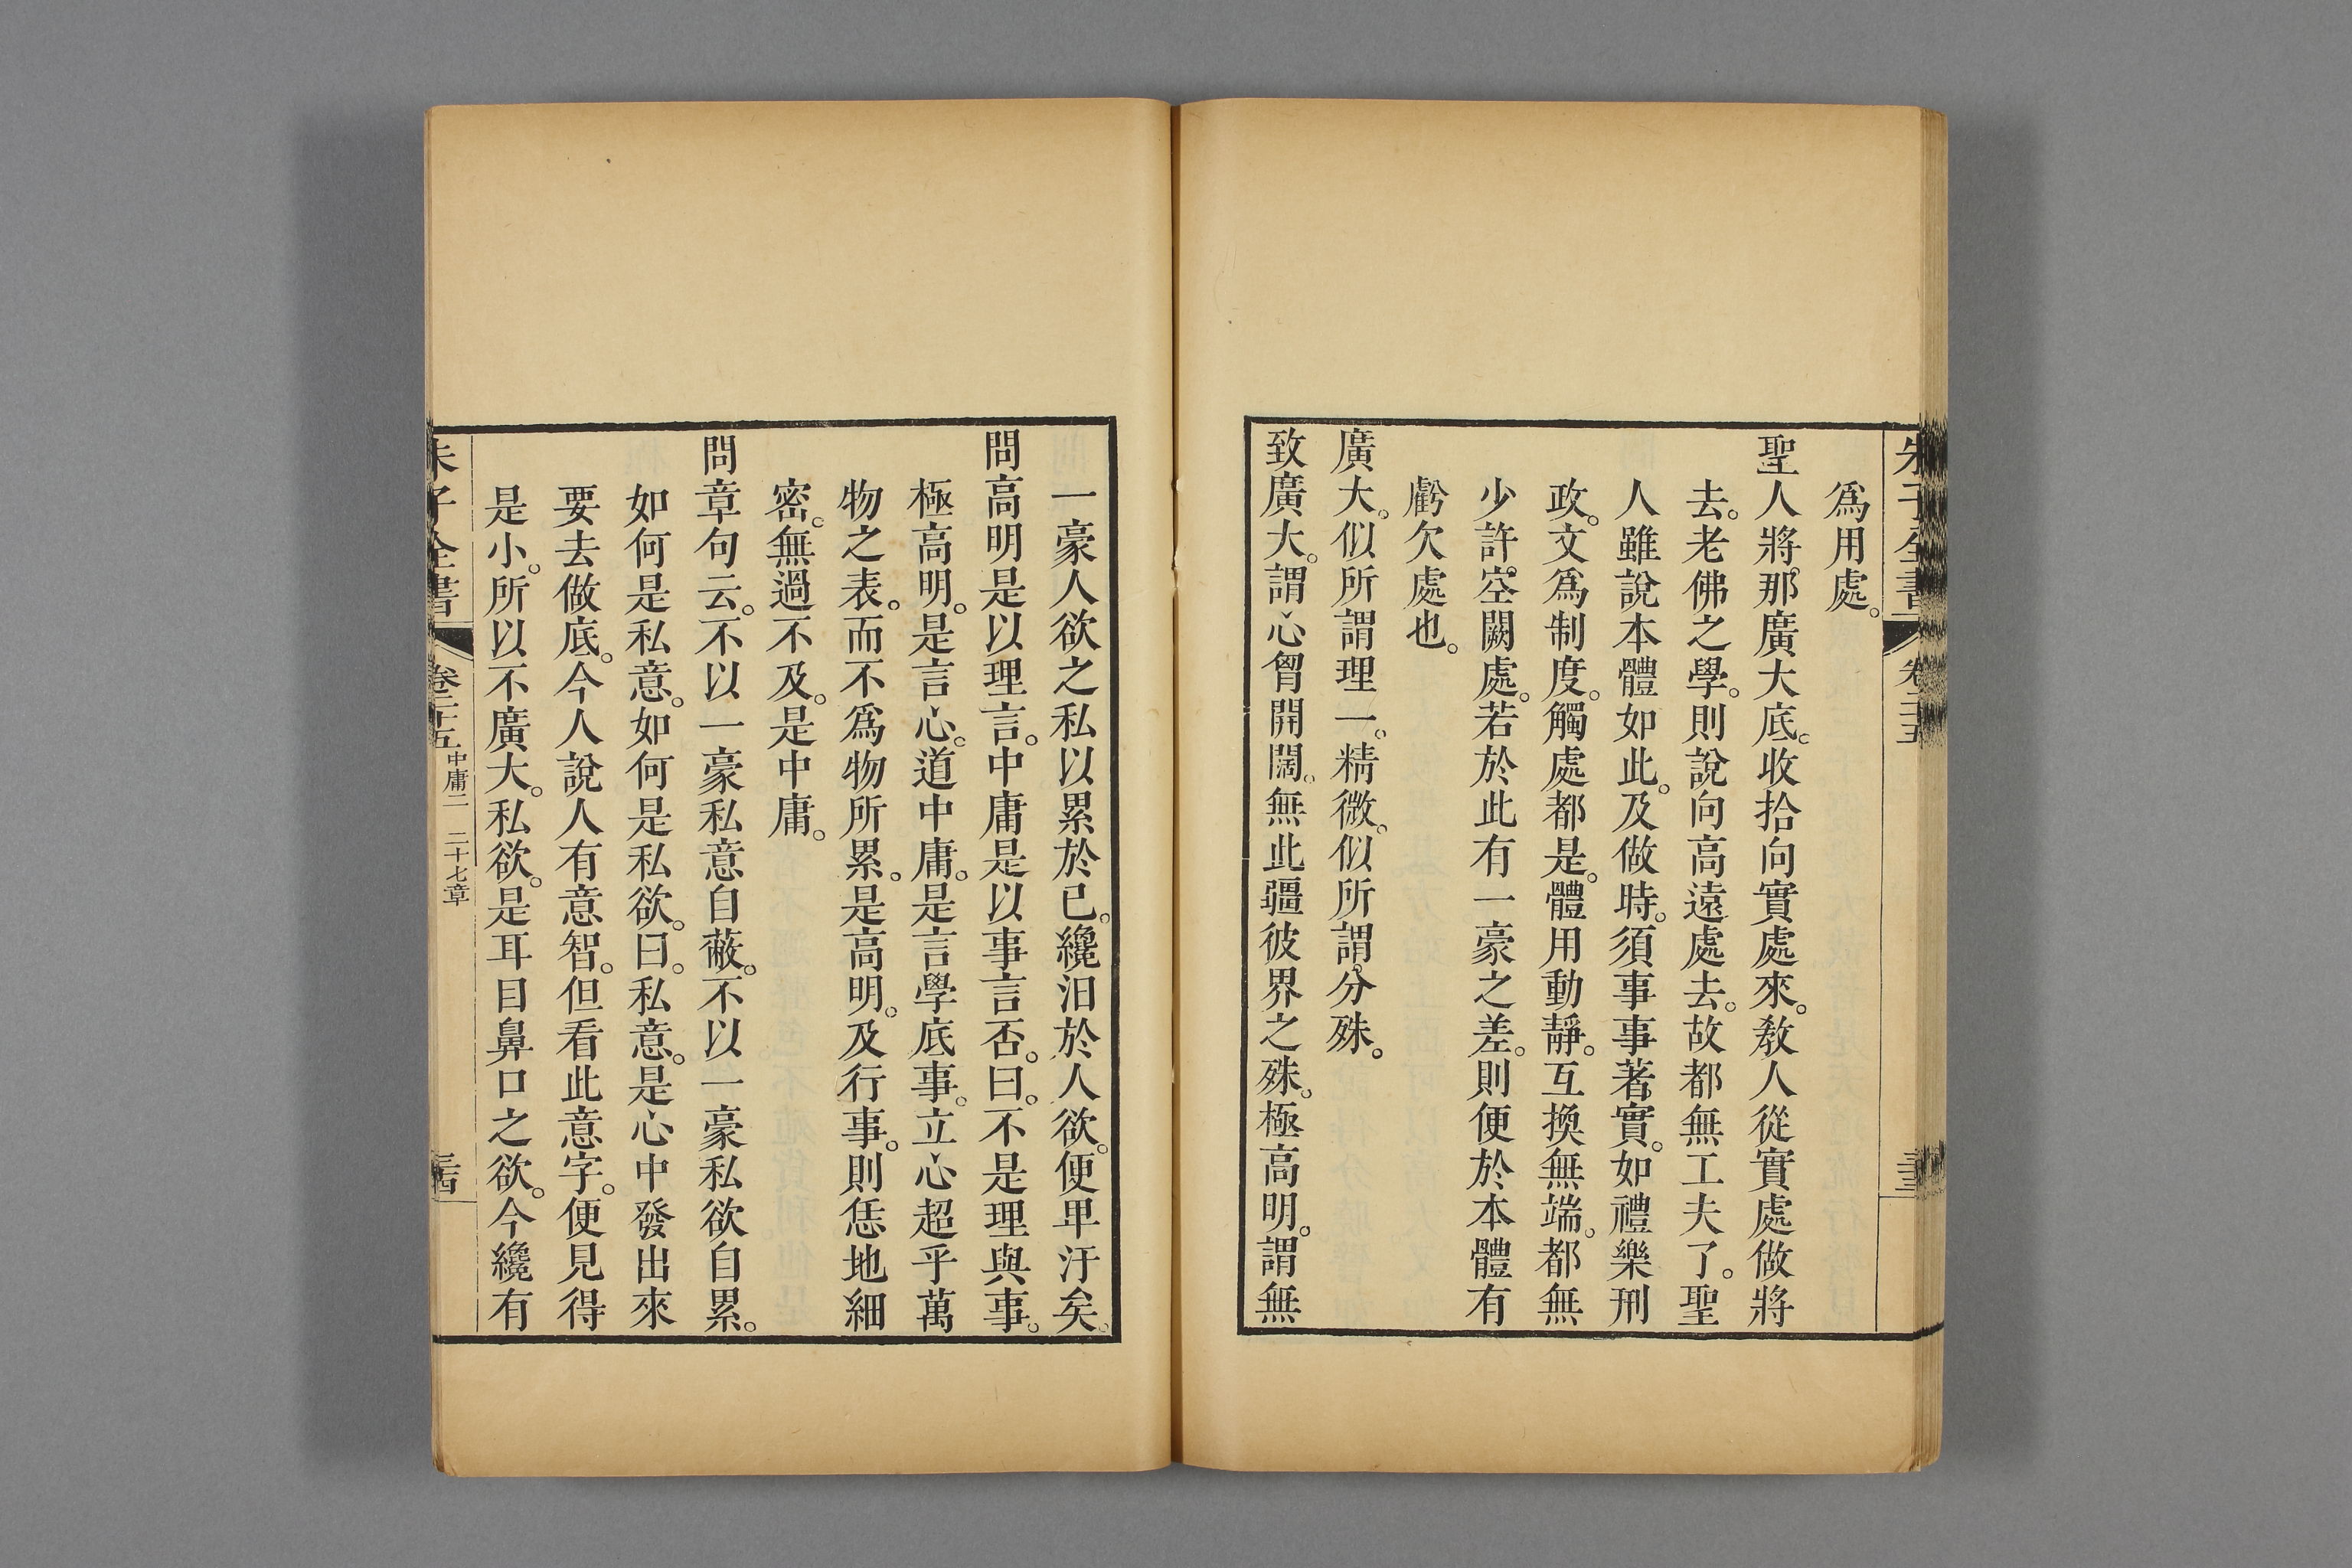 朱子全書 卷二十五
爲用處。
聖人將那廣大底。收拾向實處來。教人從實處做將
去。老佛之學。則說向高遠處去。故都無工夫了。聖
人雖說本體如此。及做時。須事事著實。如禮樂刑
政。文爲制度。觸處都是。體用動靜。互換無端。都無
少許空闕處。若於此有一豪之差。則便於本體有
虧欠處也。
廣大。似所謂理一。精微。似所謂分殊。
致廣大。謂心胷開闊。無此疆彼界之殊。極高明。謂無
一豪人欲之私以累於已。纔汨於人欲。便卑汙矣。
問高明是以理言。中庸是以事言否。曰。不是理與事。
極高明。是言心。道中庸。是言學底事。立心超乎萬
物之表。而不爲物所累。是高明。及行事。則恁地細
密。無過不及。是中庸。
問章句云。不以一豪私意自蔽。不以一豪私欲自累。
如何是私意。如何是私欲。曰。私意。是心中發出來
要去做底。今人說人有意智。但看此意字。便見得
是小。所以不廣大。私欲。是耳目鼻口之欲。今纔有
朱子全書 卷二十五 中庸二 二十七章